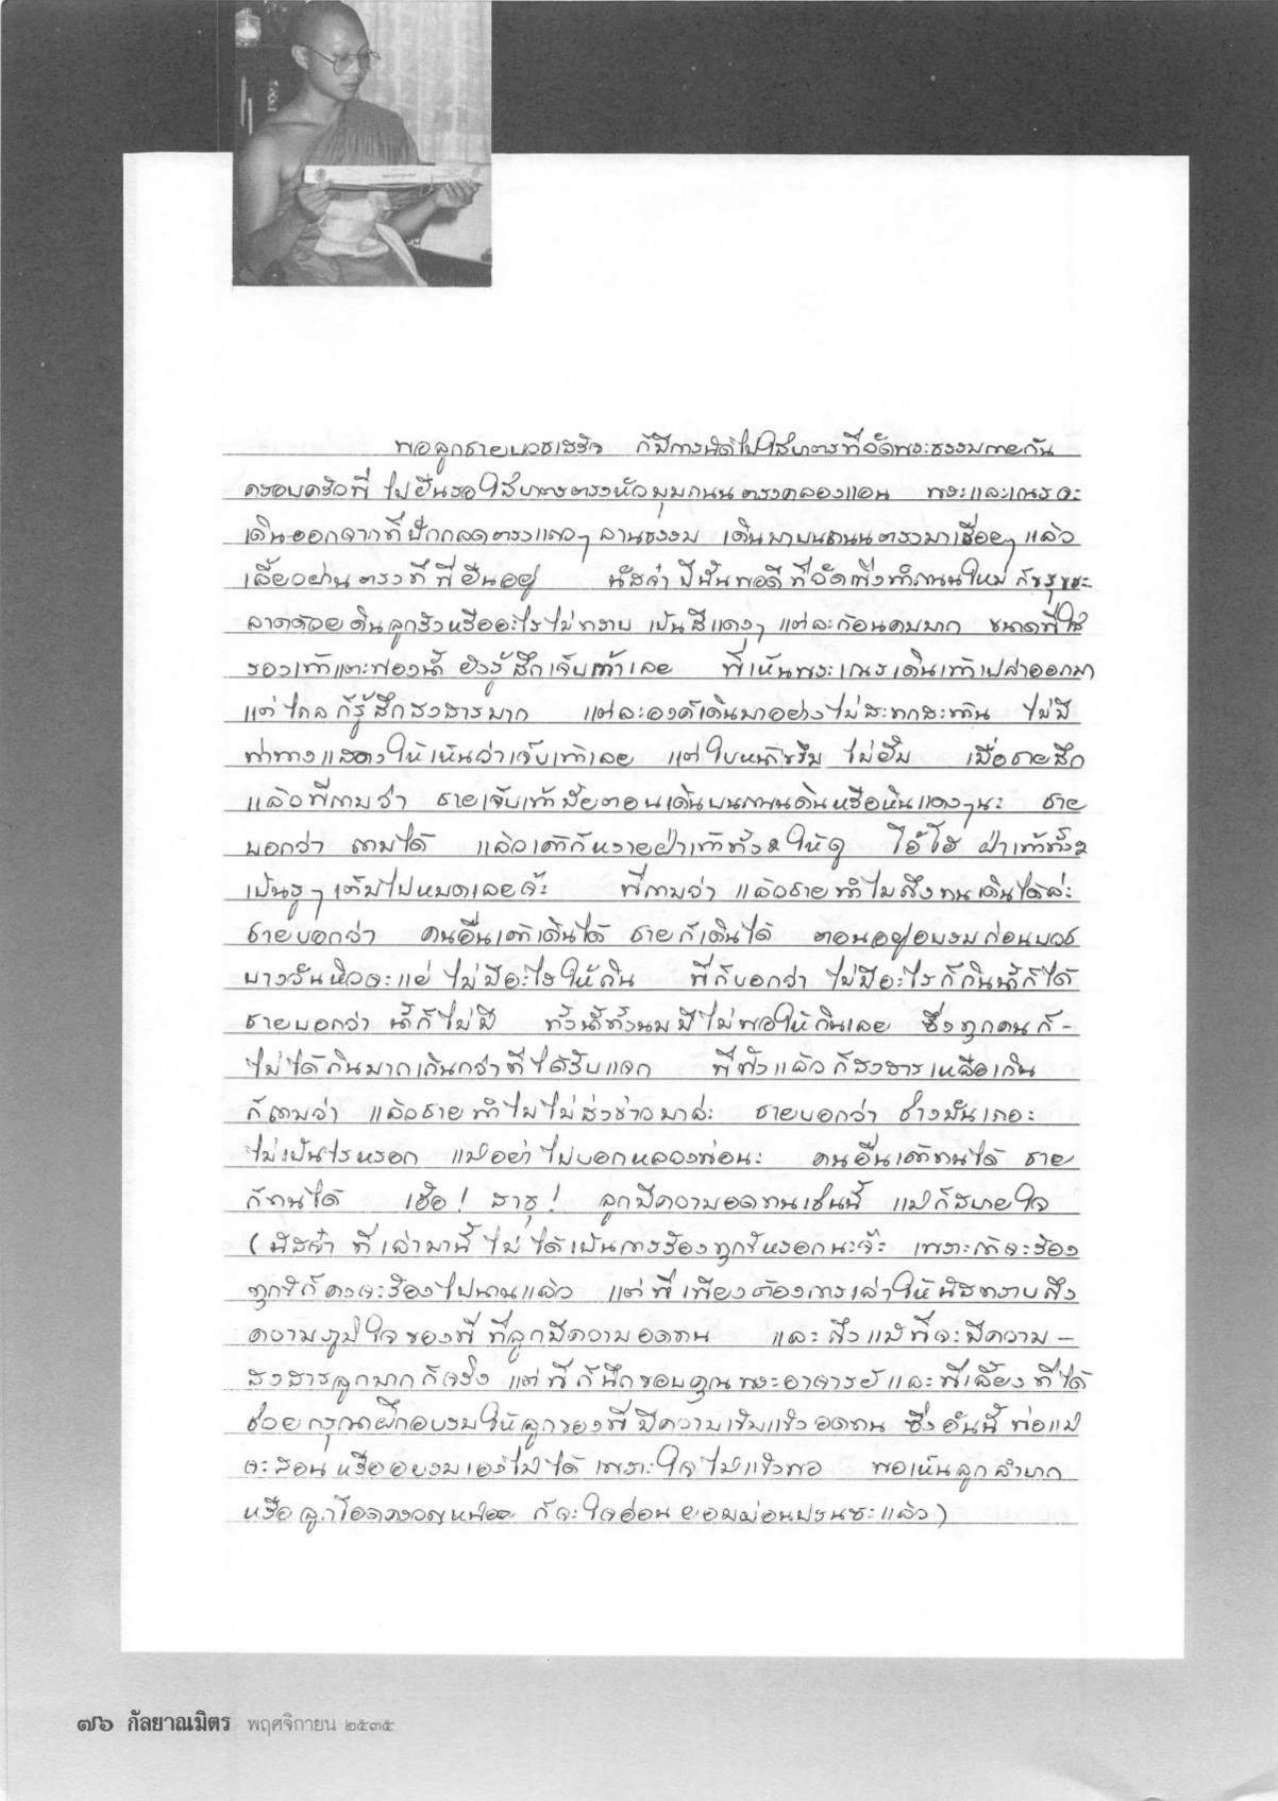 พอลูกชายบวชเสร็จ ก็มีการนัดไปใส่บาตรที่วัดพระธรรมกายกัน
ครอบครัวพี่ ไปยืนรอใส่บาตรตรงหัวมุมถนนตรงคลองแอน พระและเณรจะ
เดินออกจากที่ปักกลดตรงแถวๆ ลานธรรม เดินมาบนถนนตรงมาเรื่อยๆ แล้ว
เลี้ยวผ่านตรงที่พี่ยืนอยู่ นัสจ๋า ปีนั้นพอดีที่วัดเพิ่งทำถนนใหม่ ก็ขรุขระ
ลาดด้วยดินลูกรังหรืออะไรไม่ทราบ เป็นสีแดงๆ แต่ละก้อนคมมาก ขนาดพี่ใส่
รองเท้าแตะฟองน้ำ ยังรู้สึกเจ็บเท้าเลย พี่เห็นพระเณรเดินเท้าเปล่าออกมา
แต่ไกล ก็รู้สึกสงสารมาก แต่ละองค์เดินมาอย่างไม่สะทกสะท้าน ไม่มี
ท่าทางแสดงให้เห็นว่าเจ็บเท้าเลย แต่ใบหน้าขรึม ไม่ยิ้ม เมื่อชายสึก
แล้วพี่ถามว่า ชายเจ็บเท้ามั้ยตอนเดินบนถนนดินหรือหินแดงๆ นะ ชาย
บอกว่า ทนได้ แล้วเค้าก็หงายฝ่าเท้าทั้ง ๒ ให้ดู โอ้โฮ ฝ่าเท้าทั้ง ๒
เป็นรูๆ เต็มไปหมดเลยจ้ะ พี่ถามว่า แล้วชายทำไมถึงทนเดินได้ล่ะ
ชายบอกว่า คนอื่นเค้าเดินได้ ชายก็เดินได้ ตอนอยู่อบรมก่อนบวช
บางวันหิวจะแย่ ไม่มีอะไรให้กิน พี่ก็บอกว่า ไม่มีอะไรก็กินน้ำก็ได้
ชายบอกว่า น้ำก็ไม่มี ทั้งน้ำทั้งนมมีไม่พอให้กินเลย ซึ่งทุกคนก็-
ไม่ได้กินมากเกินกว่าที่ได้รับแจก พี่ฟังแล้วก็สงสารเหลือเกิน
ก็ถามว่า แล้วชายทำไมไม่ส่งข่าวมาล่ะ ชายบอกว่า ช่างมันเถอะ
ไม่เป็นไรหรอก แม่อย่าไปบอกหลวงพ่อนะ คนอื่นเค้าทนได้ ชาย
ก็ทนได้ เฮ้อ! สาธุ! ลูกมีความอดทนเช่นนี้ แม่ก็สบายใจ
(นัสจ๋า ที่เล่ามานี้ ไม่ได้เป็นการร้องทุกข์หรอกนะจ๊ะ เพราะถ้าจะร้อง
ทุกข์ก็คงจะร้องไปนานแล้ว แต่พี่เพียงต้องการเล่าให้นัสทราบถึง
ความภูมิใจของพี่ ที่ลูกมีความอดทน และถึงแม้พี่จะมีความ-
สงสารลูกมากก็จริง แต่พี่ก็นึกขอบคุณพระอาจารย์และพี่เลี้ยงที่ได้
ช่วยกรุณาฝึกอบรมให้ลูกของพี่มีความเข้มแข็งอดทน ซึ่งอันนี้ พ่อแม่
จะสอนหรืออบรมเองไม่ได้ เพราะใจไม่แข็งพอ พอเห็นลูกลำบาก
หรือลูกโอดครวญหน่อย ก็จะใจอ่อน ยอมผ่อนปรนซะแล้ว)
๗๖ กัลยาณมิตร พฤศจิกายน ๒๕๓๕